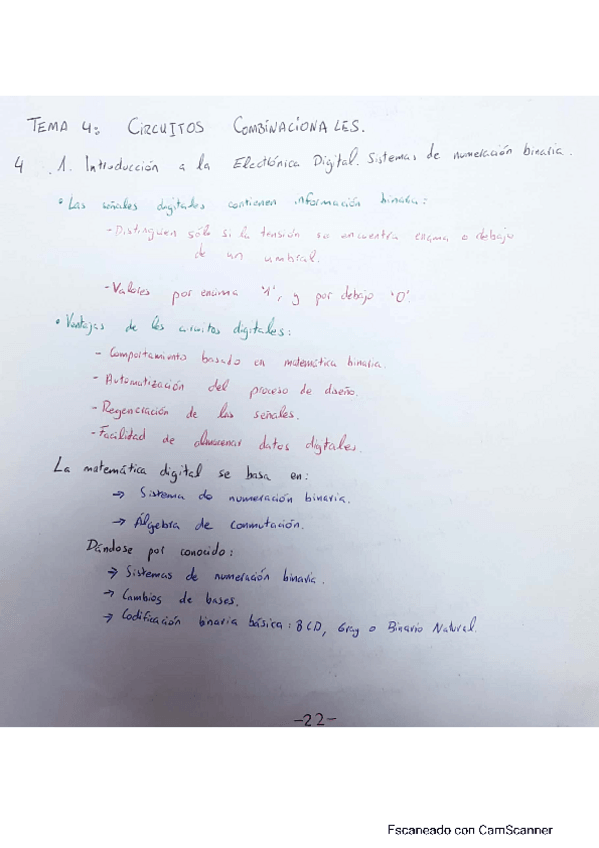 TEMA 4: CIRCUITOS COMBINACIONALES.
4.1. Introducción a la Electrónica Digital. Sistemas de numeración binaria.
• Las señales digitales contienen información binaria:
- Distinguen sólo si la tensión se encuentra encima o debajo
de un umbral.
- Valores por encima '1', y por debajo '0'.
• Ventajas de los circuitos digitales:
- Comportamiento basado en matemática binaria.
- Automatización del proceso de diseño.
- Regeneración de las señales.
- Facilidad de almacenar datos digitales.
La matemática digital se basa en:
→ Sistema de numeración binaria.
→ Álgebra de conmutación.
Dándose por conocido:
→ Sistemas de numeración binaria.
→ Cambios de bases.
→ Codificación binaria básica: BCD, Gray o Binario Natural.
-22-
Escaneado con CamScanner